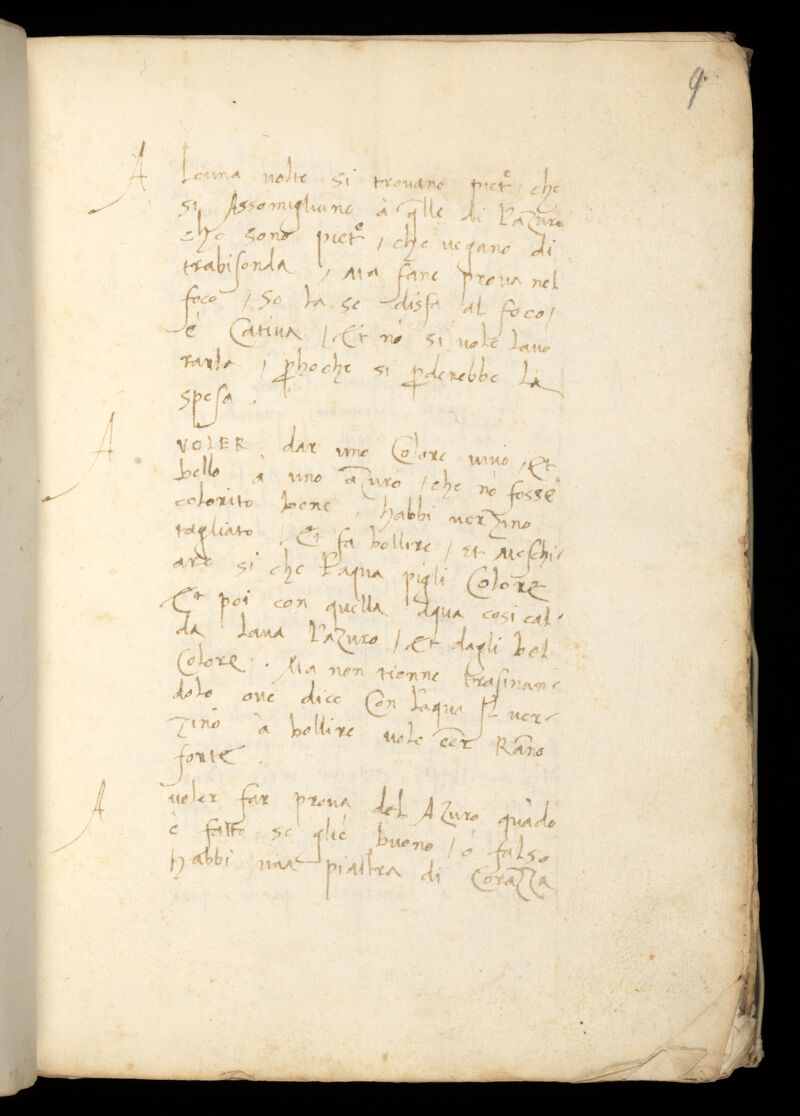 9
A Lcuna volte si trovano piet^e, che
si Assomigliano à q̄lle di l'azuro
che sono piet^e, che vegano di
trabisonda, Ma fane prova nel
foco, Se la se disfa al foco,
è Cativa, Et nō si vole lavo
rarla, p̄hoche si p̄derebbe la
spesa.
A VOLER dar uno Colore vivo, Et
bello à uno azuro, che nō fosse
colorito bene, habbi verzino
tagliato, Et fa bollire, et meschi-
are si che l'aqua pigli Colore
Et poi con quella aqua cosi cal-
da lava l'azuro, Et dagli bel
Colore. Ma non tienne trasinan-
dolo ove dice Con l'aqua il ver-
zino à bollire vole eēr Rāno
forte.
A voler far prova del Azuro quādo
è fatto se gliè buono, ò falso
habbi una piastra di Corazza